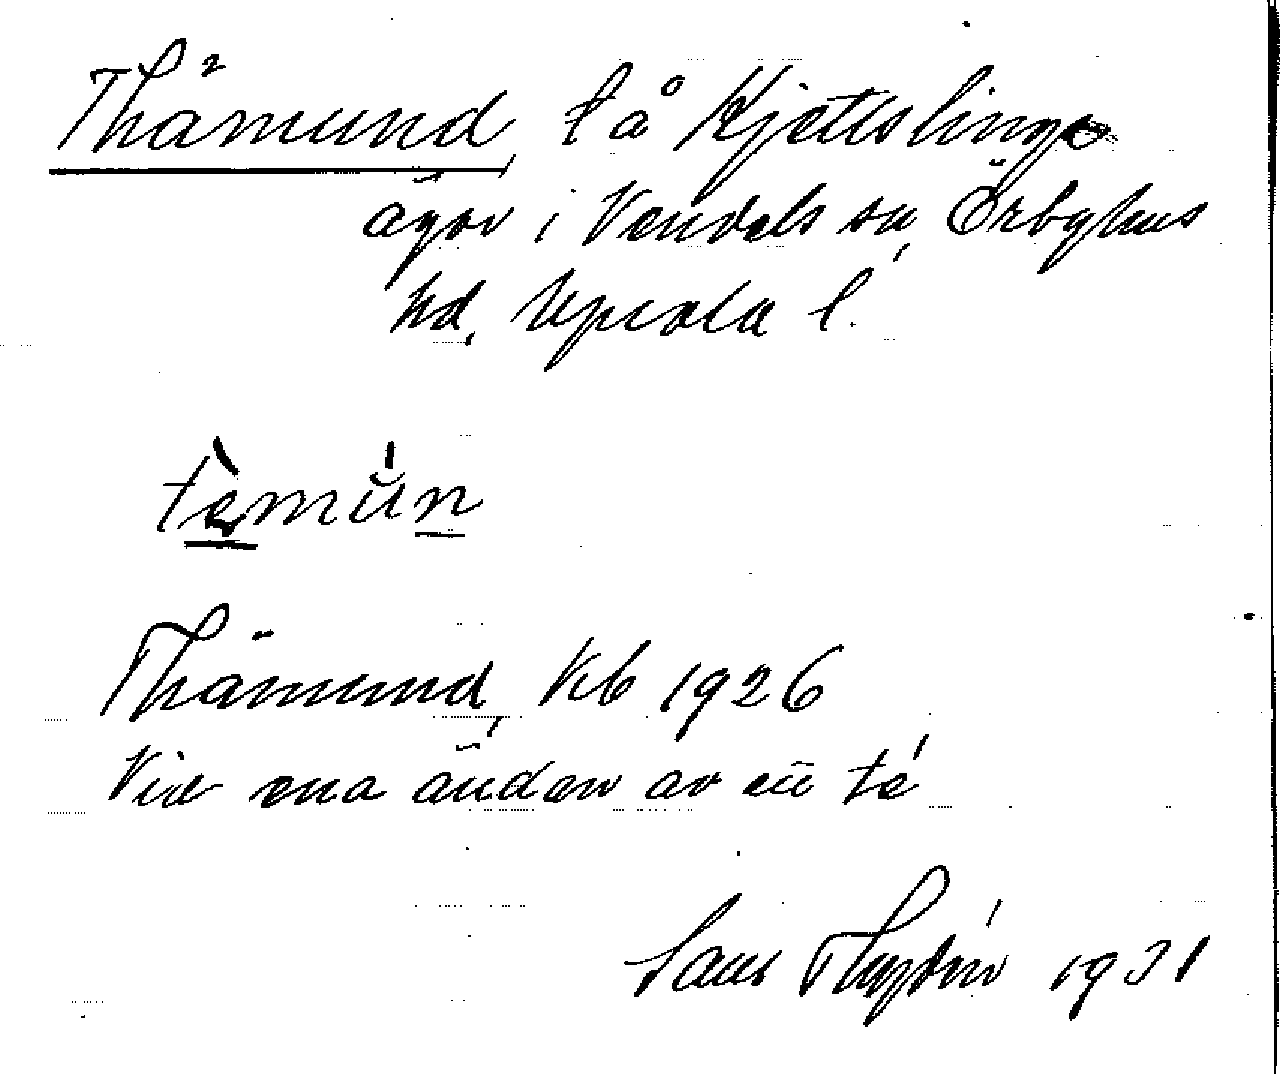 Thämund, lå Kjettslinge
ägor i Vendels sn, Örbyhus
hd, Upsala l.
tèmŭn
Thämund, Kb 1926
Vid ena ändan av en té
1931